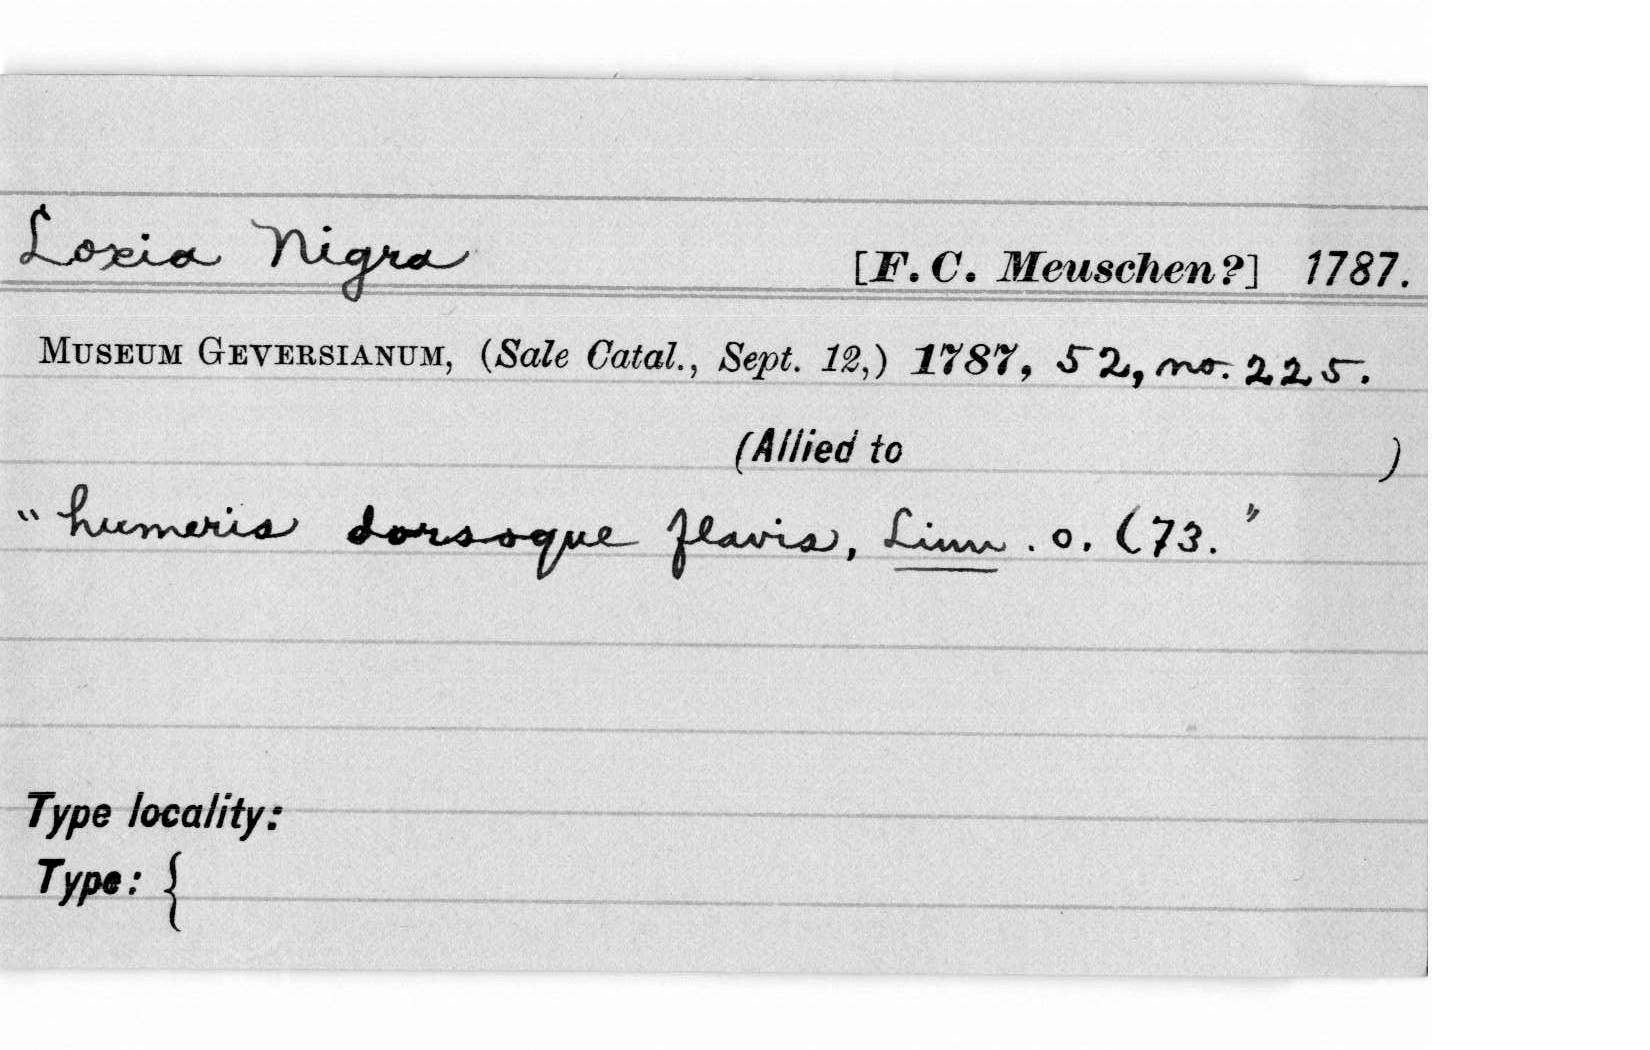 Loxia Nigra [F. C. Meuschen?] 1787.
MUSEUM GEVERSIANUM, (Sale Catal., Sept. 12,) 1787, 52, no. 225.
(Allied to )
"humeris dorsoque flavis, Linn. o. (73."
Type locality:
Type: {